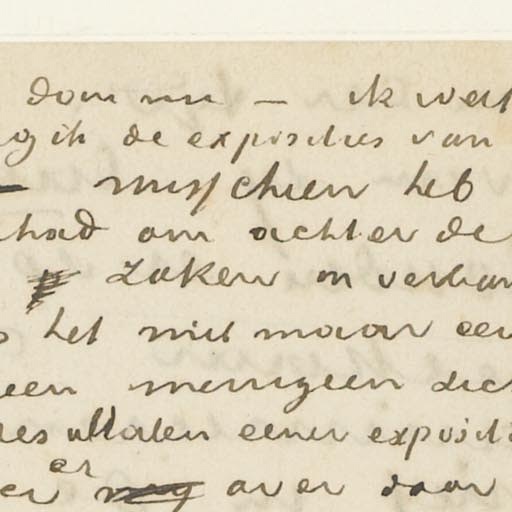 dom nu — ik wed
ng ik de exposities van
— misschien heb
had om achter de
zaken in verban
het niet maar een
een menigeen die
resultaten eener exposit
er er over daar